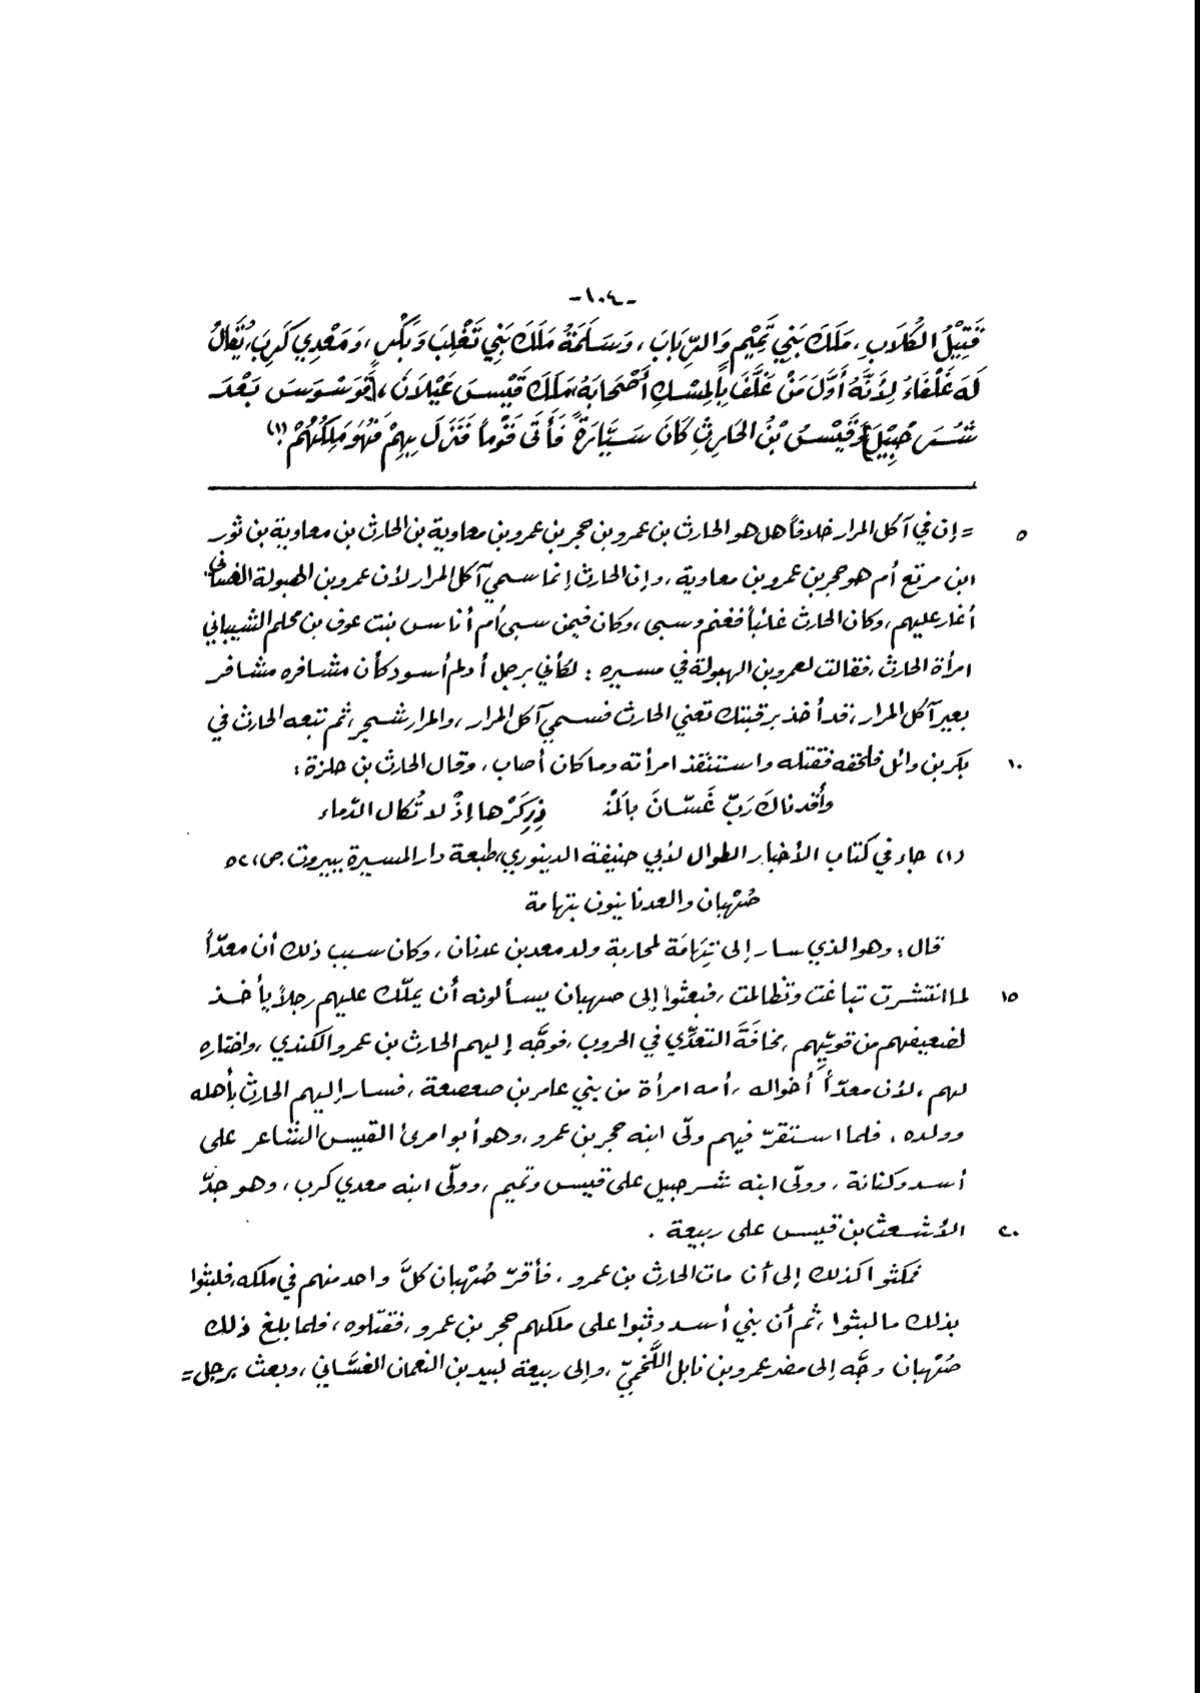 -١٠٤-
قَتِيْلُ الكُلَابِ، مَلَكَ بَنِي تَمِيْمٍ وَالرِّبَابَ، وَسَلَمَةُ مَلَكَ بَنِي تَغْلِبَ وَبَكْرٍ، وَمَعْدِي كَرِبَ، يُقَالُ
لَهُ غَلْفَاءُ لِأَنَّهُ أَوَّلُ مَنْ غَلَّفَ بِالمِسْكِ أَصْحَابَهُ، مَلَكَ قَيْسَ عَيْلَانَ، {تَوَسْوَسَ بَعْدَ
شُرَحْبِيْلَ} وَقَيْسُ بْنُ الحَارِثِ كَانَ سَيَّارَةً فَأَتَى قَوْماً فَنَزَلَ بِهِمْ فَهُوَ مَلِكُهُمْ (١)
٥ = إن في آكل المرار خلافاً هل هو الحارث بن عمرو بن حجر بن عمرو بن معاوية بن الحارث بن معاوية بن ثور
ابن مرتع أم هو حجر بن عمرو بن معاوية، وإن الحارث إنما سمي آكل المرار لأن عمرو بن الهبولة الغساني
أغار عليهم، وكان الحارث غائباً فغنم وسبى، وكان فيمن سبى أم أناس بنت عوف بن محلم الشيباني
امرأة الحارث، فقالت لعمرو بن الهبولة في مسيره : لكأني برجل أدلم أسود كأن مشافره مشافر
بعير آكل المرار، قد أخذ برقبتك تعني الحارث فسمي آكل المرار، والمرار شجر، ثم تبعه الحارث في
١٠ بكر بن وائل فلحقه فقتله واستنقذ امرأته وما كان أصاب، وقال الحارث بن حلزة :
وأقدناك رَبّ غَسّانَ بالمُنْـ ذِرِ كَرْهاً إذْ لا تُكال الدّماء
(١) جاء في كتاب الأخبار الطوال لأبي حنيفة الدينوري، طبعة دار المسيرة ببيروت. ص، ٥٢
صُهْبان والعدنانيون بتهامة
قال : وهو الذي سار إلى تِهَامَة لمحاربة ولد معد بن عدنان، وكان سبب ذلك أن معدّاً
١٥ لما انتشرت تباغت وتظالمت، فبعثوا إلى صهبان يسألونه أن يملّك عليهم رجلاً يأخذ
لضعيفهم من قويّهم، مخافَةَ التعدِّي في الحروب، فوجَّه إليهم الحارث بن عمرو الكندي، واختاره
لهم، لأن معدّاً أخواله، أمه امرأة من بني عامر بن صعصعة، فسار إليهم الحارث بأهله
وولده، فلما استقرّ فيهم ولّى ابنه حجر بن عمرو، وهو أبو امرئ القيس الشاعر على
أسد وكنانة، وولّى ابنه شرحبيل على قيس وتميم، وولّى ابنه معدي كرب، وهو جدّ
٢٠ الأشعث بن قيس على ربيعة .
فمكثوا كذلك إلى أن مات الحارث بن عمرو، فأقرّ صُهْبان كلَّ واحد منهم في ملكه، فلبثوا
بذلك ما لبثوا، ثم أن بني أسد وثبوا على ملكهم حجر بن عمرو، فقتلوه، فلما بلغ ذلك
صُهْبان وجَّه إلى مضر عمرو بن نابل اللَّخميّ، وإلى ربيعة لبيد بن النعمان الغسَّاني، وبعث برجل =